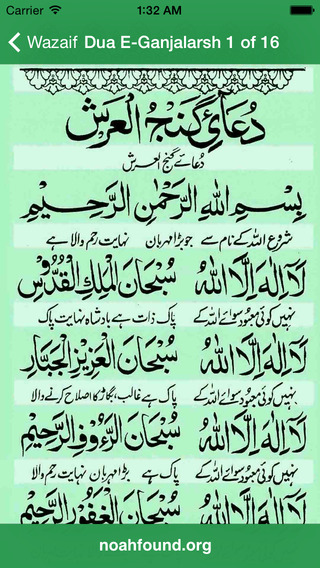 Carrier 1:32 AM
Wazaif Dua E-Ganjalarsh 1 of 16
دُعَائِ گَنْجُ الْعَرَشْ
دُعائے گنج العرش
بِسْمِ اللهِ الرَّحْمٰنِ الرَّحِيْمِ
شروع اللہ کے نام سے جو بڑا مہربان نہایت رحم والا ہے
لَا اِلٰهَ اِلَّا اللهُ سُبْحَانَ الْمَلِكِ الْقُدُّوْسِ
نہیں کوئی معبود سوائے اللہ کے پاک ذات ہے بادشاہ نہایت پاک
لَا اِلٰهَ اِلَّا اللهُ سُبْحَانَ الْعَزِيْزِ الْجَبَّارِ
نہیں کوئی معبود سوائے اللہ کے پاک ہے غالب، بگاڑ کا اصلاح کرنے والا
لَا اِلٰهَ اِلَّا اللهُ سُبْحَانَ الرَّءُوْفِ الرَّحِيْمِ
نہیں کوئی معبود سوائے اللہ کے پاک ہے بڑا مہربان نہایت رحم والا
لَا اِلٰهَ اِلَّا اللهُ سُبْحَانَ الْغَفُوْرِ الرَّحِيْمِ
noahfound.org